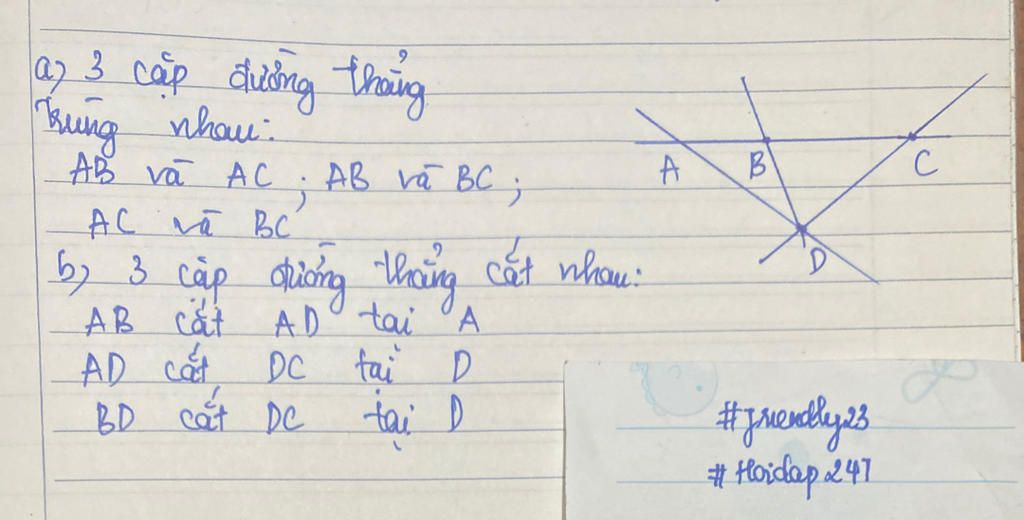 a) 3 cặp đường thẳng
trùng nhau:
AB và AC ; AB và BC ;
AC và BC
b) 3 cặp đường thẳng cắt nhau:
AB cắt AD tại A
AD cắt DC tại D
BD cắt DC tại D
A B C
D
#friendly23
#Hoidap247